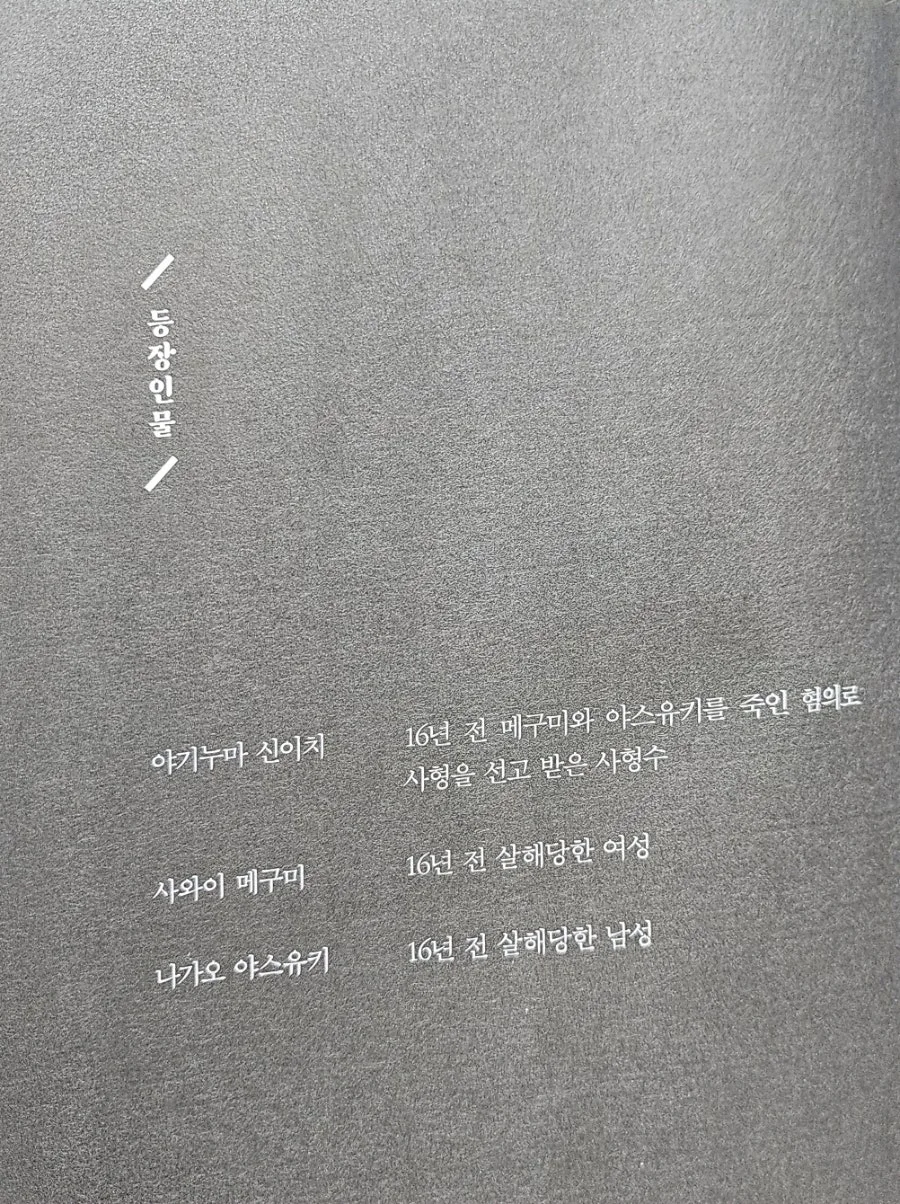 등장인물
야기누마 신이치 16년 전 메구미와 야스유키를 죽인 혐의로
사형을 선고 받은 사형수
사와이 메구미 16년 전 살해당한 여성
나가오 야스유키 16년 전 살해당한 남성